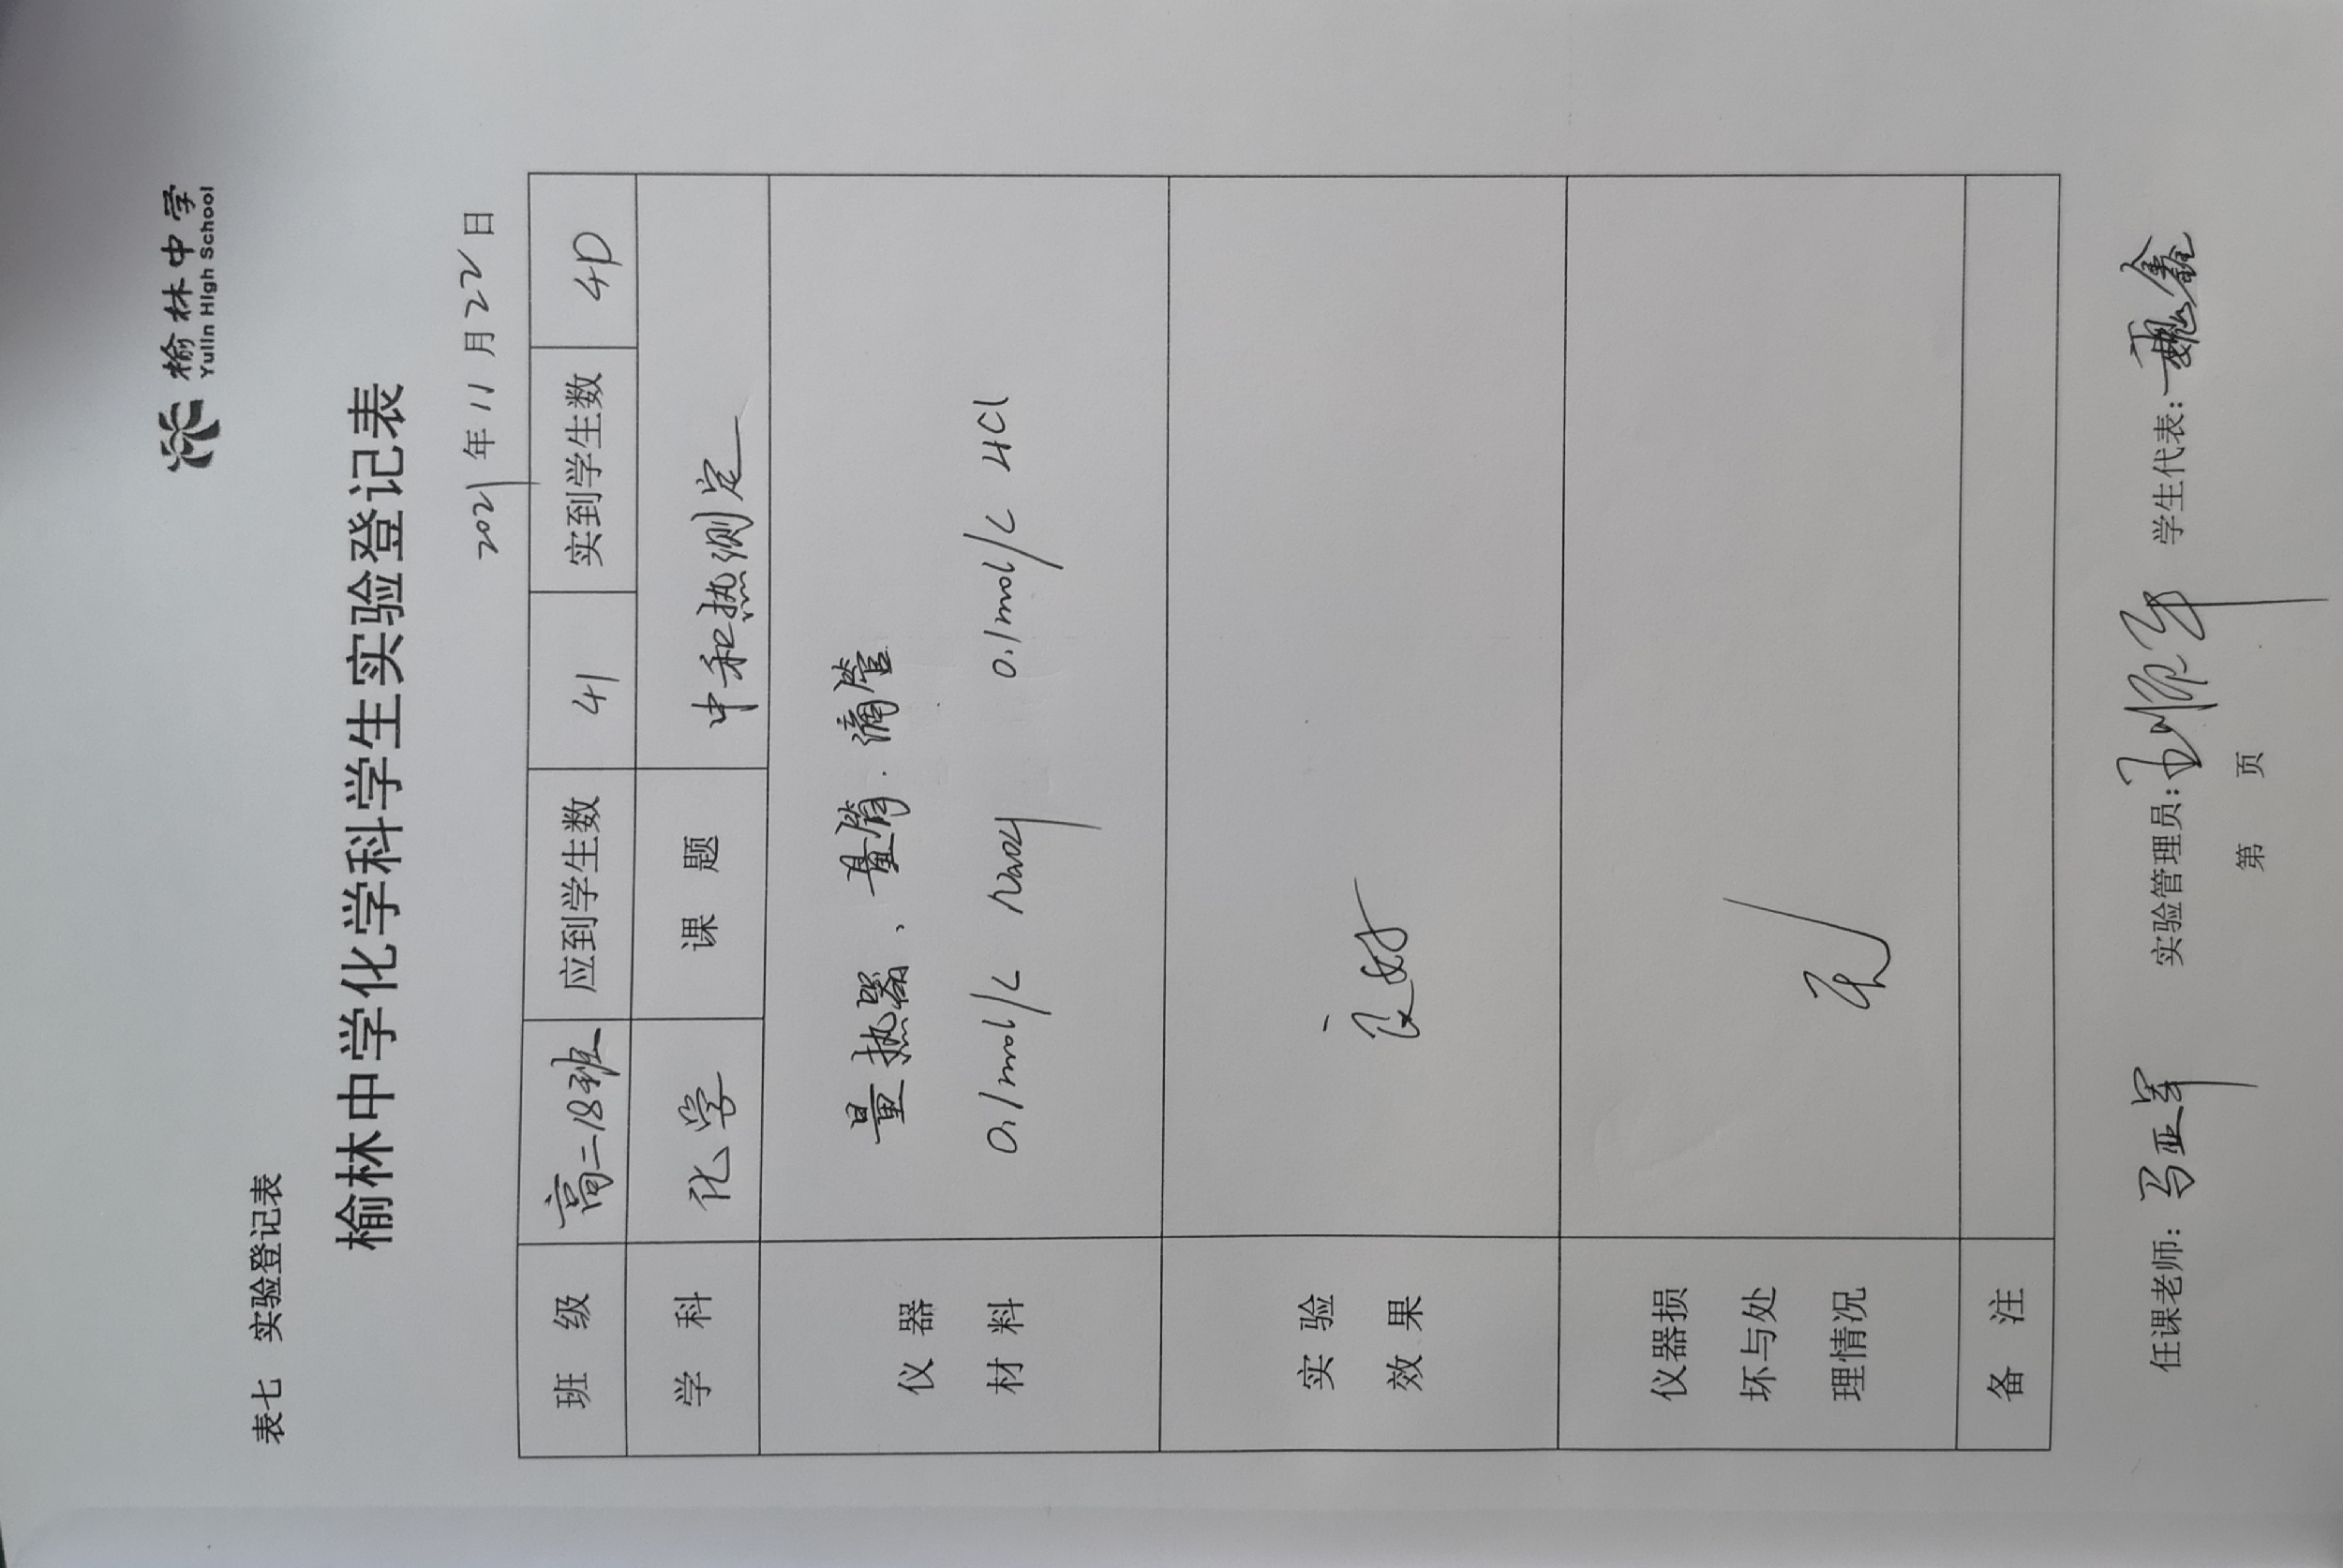 榆林中学
Yulin High School
表七 实验登记表
榆林中学化学科学生实验登记表
2021年11月22日
班级 高二18班 应到学生数 41 实到学生数 40
学科 化学 课题 中和热测定
仪器材料
量热器、量筒.滴管
0.1mol/L NaOH 0.1mol/L HCl
实验效果 良好
仪器损坏与处理情况 无
备注
任课老师: 马亚军 实验管理员: 学生代表: 魏鑫
第 页